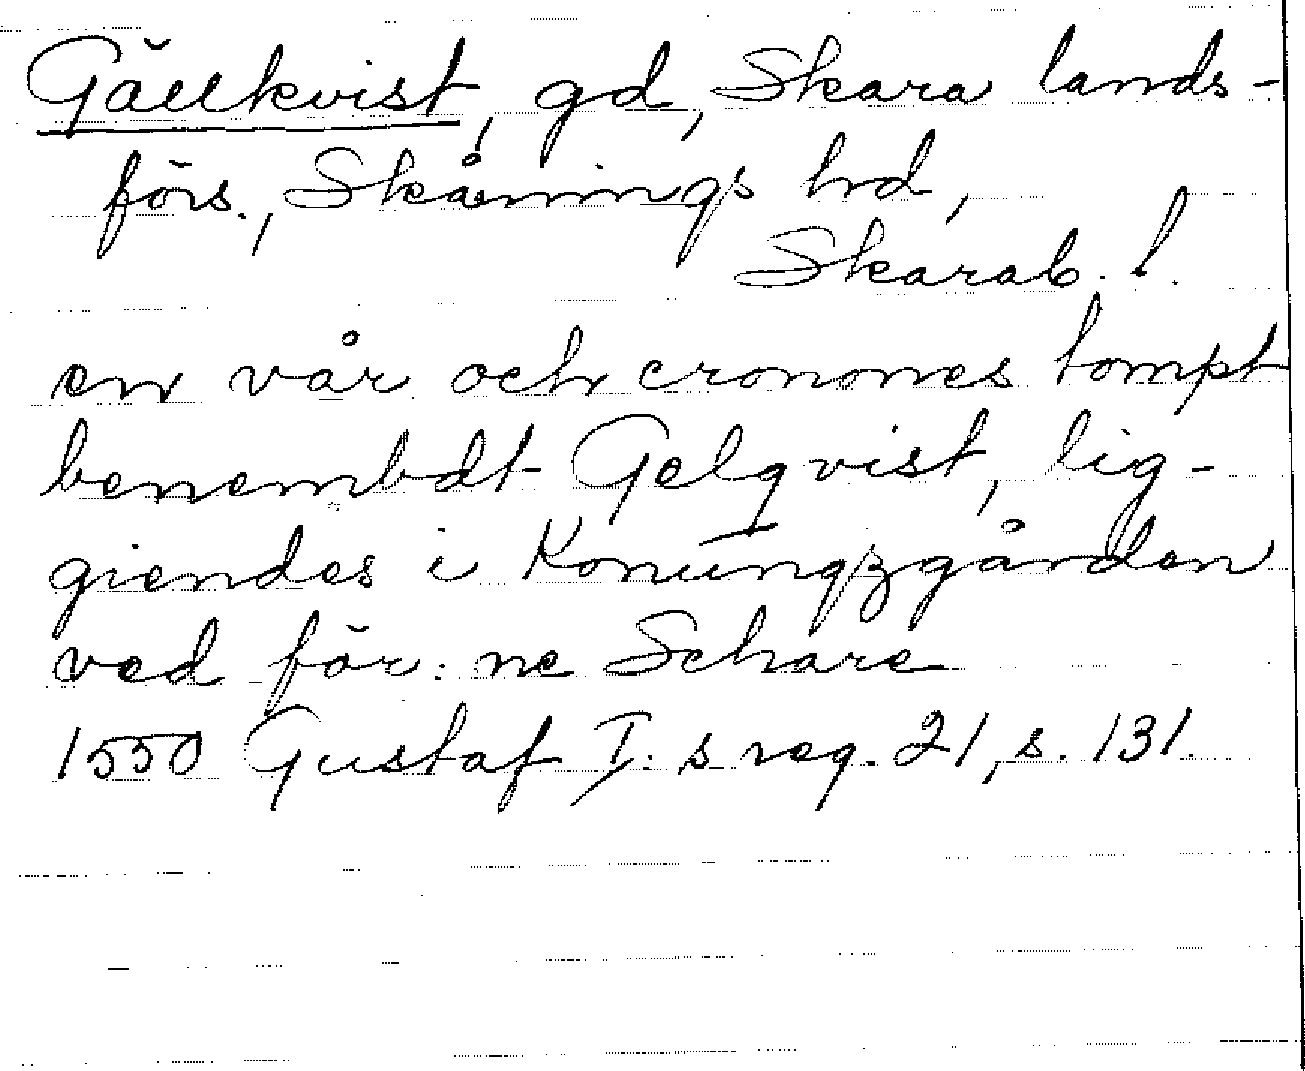 Gällkvist, gd, Skara lands-
förs., Skånings hd,
Skarab. l.
en vår och cronones tompt
benembdt Gelqvist, lig-
giendes i Konungzgården
ved för:ne Schare
1550 Gustaf I:s reg. 21, s. 131.